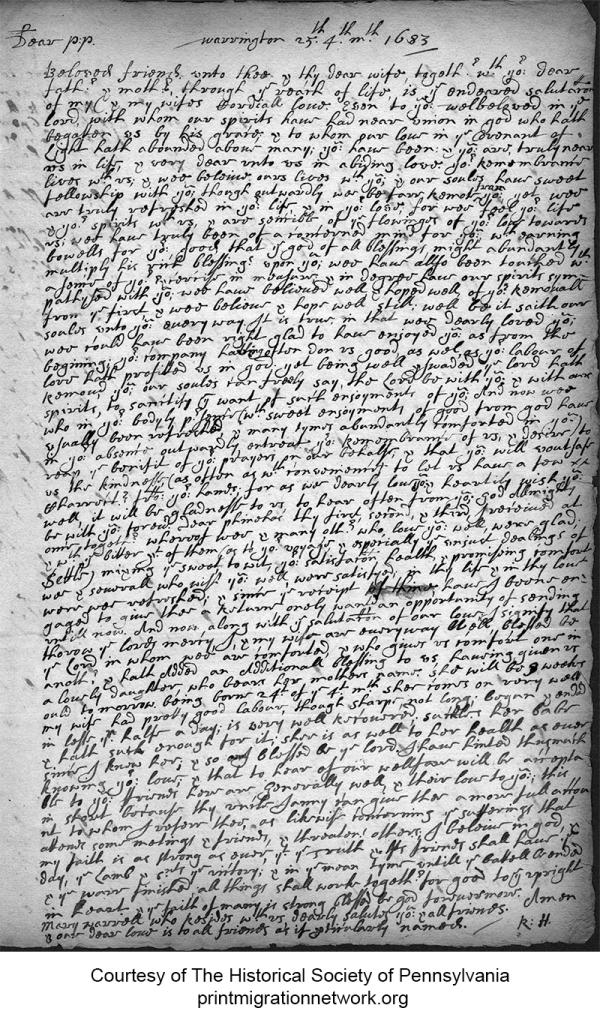 Dear p:p. warrington 25th 4th mth 1683
Beloved friend, unto thee & thy dear wife, togeth: wth yor dear
fath: & moth:, through ye reach of life is ye endeared salutation
of my & my wifes Cordiall love, sent to yor welbeloved in ye
Lord, with whom our spirits have had near union in god who hath
begotten us by his grace, & to whom our love in ye Covenant of
Light hath abounded above many; yor have been, & yor are, truly near
us in life, & very dear unto us in abiding love. yor Remembrance
lives wth us; & wee beleive ours lives wth yor, & our soules have sweet
fellowship with yor, though outwardly wee be farr remote from yor, yet wee
are truly refreshed in yor life & in yor love, for wee feel yor life
& yor spirits wth us, & are sencible of ye flowings of yor love towards
us; wee have truly been of a concerned mind for yor, wth earning
bowells for yor good, that ye god of all blessings might abundantly
multiply his rich blessings upon yor; wee have allso been touched wth
a sence of yor exercise, in measure & in degree have our spirits sym-
pathysed with yor, wee have believed well & hoped well of yor removall
from ye first, & wee believe & hope well still. well be it saith our
soules unto yor every way. It is true, in that wee dearly loved yor,
wee could have been right glad to have enjoyed yor: as from the
begining; yor company hath often don us good as well as yor labour of
love hath profited us in god, yet being well pswaded ye lord hath
remoud yor, our soules can freely say, the Lord be with yor, & with our
spirits, to sanctify ye want of such enjoyments of yor. And now wee
who in yor bodily psence wth sweet enjoyments of good from god have
usually been refreshed & many tymes abundantly comforted in yor,
in yor absence outwardly entreat yor remembrance of us, & desire to
reap ye benifit of yor prayers on our behalfs, & that yor will vouchsafe
us the kindness (as often as wth conveniency) to let us have a few
Charrect: from yor hands, for as wee dearly love yor & heartily wish yor
well, it will be gladness to us, to hear often from yor; god Almighty
be with yor forever, dear phinehas thy first, second, & third I received at
once togeth: whereof wee & many oth: who love yor well were glad;
& wth ye bitter pt of them (as to yor voyage, & especially ye unjust dealings of
Settle) mixing ye sweet to wit, yor satisfaction, health & promising comfort
wee & severall who wish yor well were satisfyed, in thy life & in thy love
were wee refreshed, & since ye receipt of thine have I been en-
gaged to give thee a Returne onely want an opportunity of sending
untill now. And now along with ye salutation of our love, I signify that
thorow ye lords mercy, I & my wife are everyway well blessed be
ye Lord in whom wee are comforted & who gives us comfort one in
anoth: & hath Added an Additionall blessing to us haveing given us
a lovely daughter, who bears her mothers name, she will be 9 weeks
ould to morrow being borne 24th of ye 4th mth shee comes on very well
my wife had pretty good labour, though sharpe not long, began & ended
in less yn halfe a day; is very well recovered, suckles her babe
& hath suck enough for it; shee is as well to her health as ever
since I knew her, & so blessed be ye lord, I have hinted thusmuch
knowing yor love, & that to hear of our wellfare will be accepta-
ble to yor friends here are generally well, & their love to yor, this
in short because thy unckle Jamy can give thee a more full accou-
nt to whom I refere thee, as likewise concerning ye sufferings that
attends some meetings & friends, & threatens others, I beleive in god,
my faith is as strong as ever, yt ye Truth & its friends shall have ye
day, ye Lamb & his ye victory; & in ye mean tyme untill ye batell bended
& ye warr finished all things shall work togeth: for good to ye upright
in heart & ye faith of many is strong blessed be god forevermore Amen
Mary warrell who resides with us dearly salutes yor & all friends.
& our dear love is to all friends as if pticularly named. R: H.
Courtesy of The Historical Society of Pennsylvania
printmigrationnetwork.org